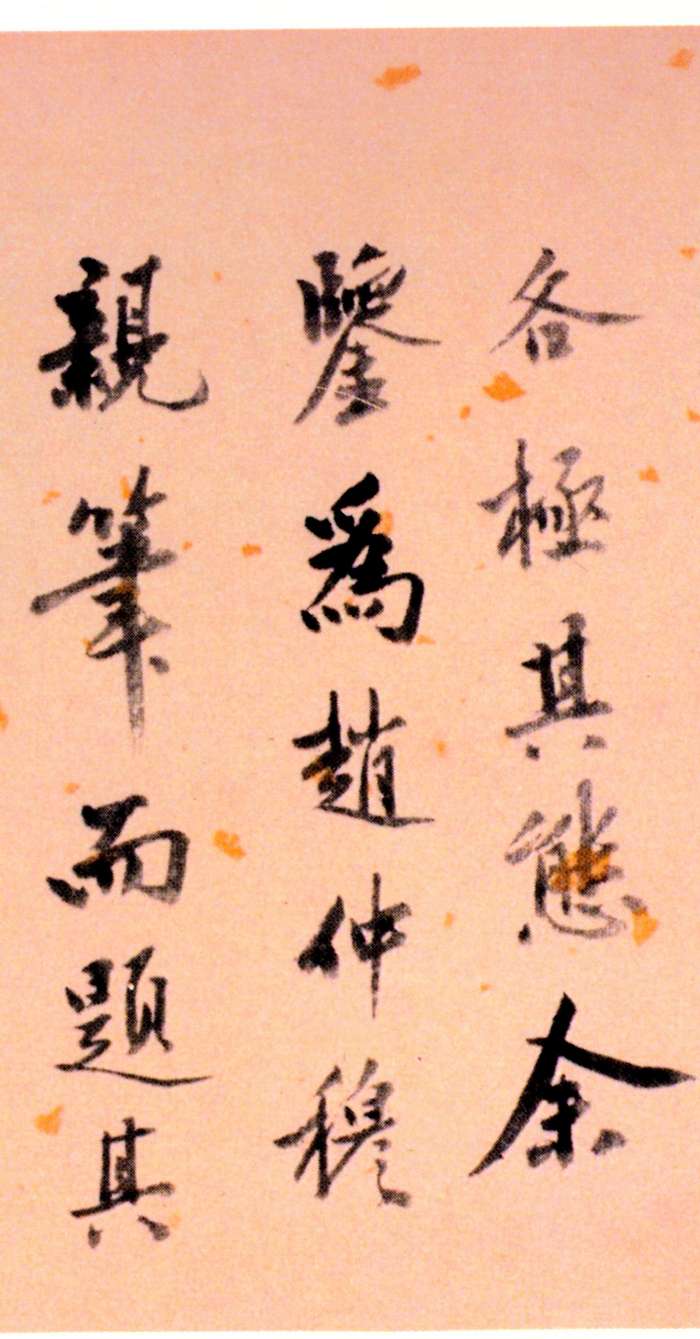 各極其態余
鑒為趙仲穆
親筆而題其